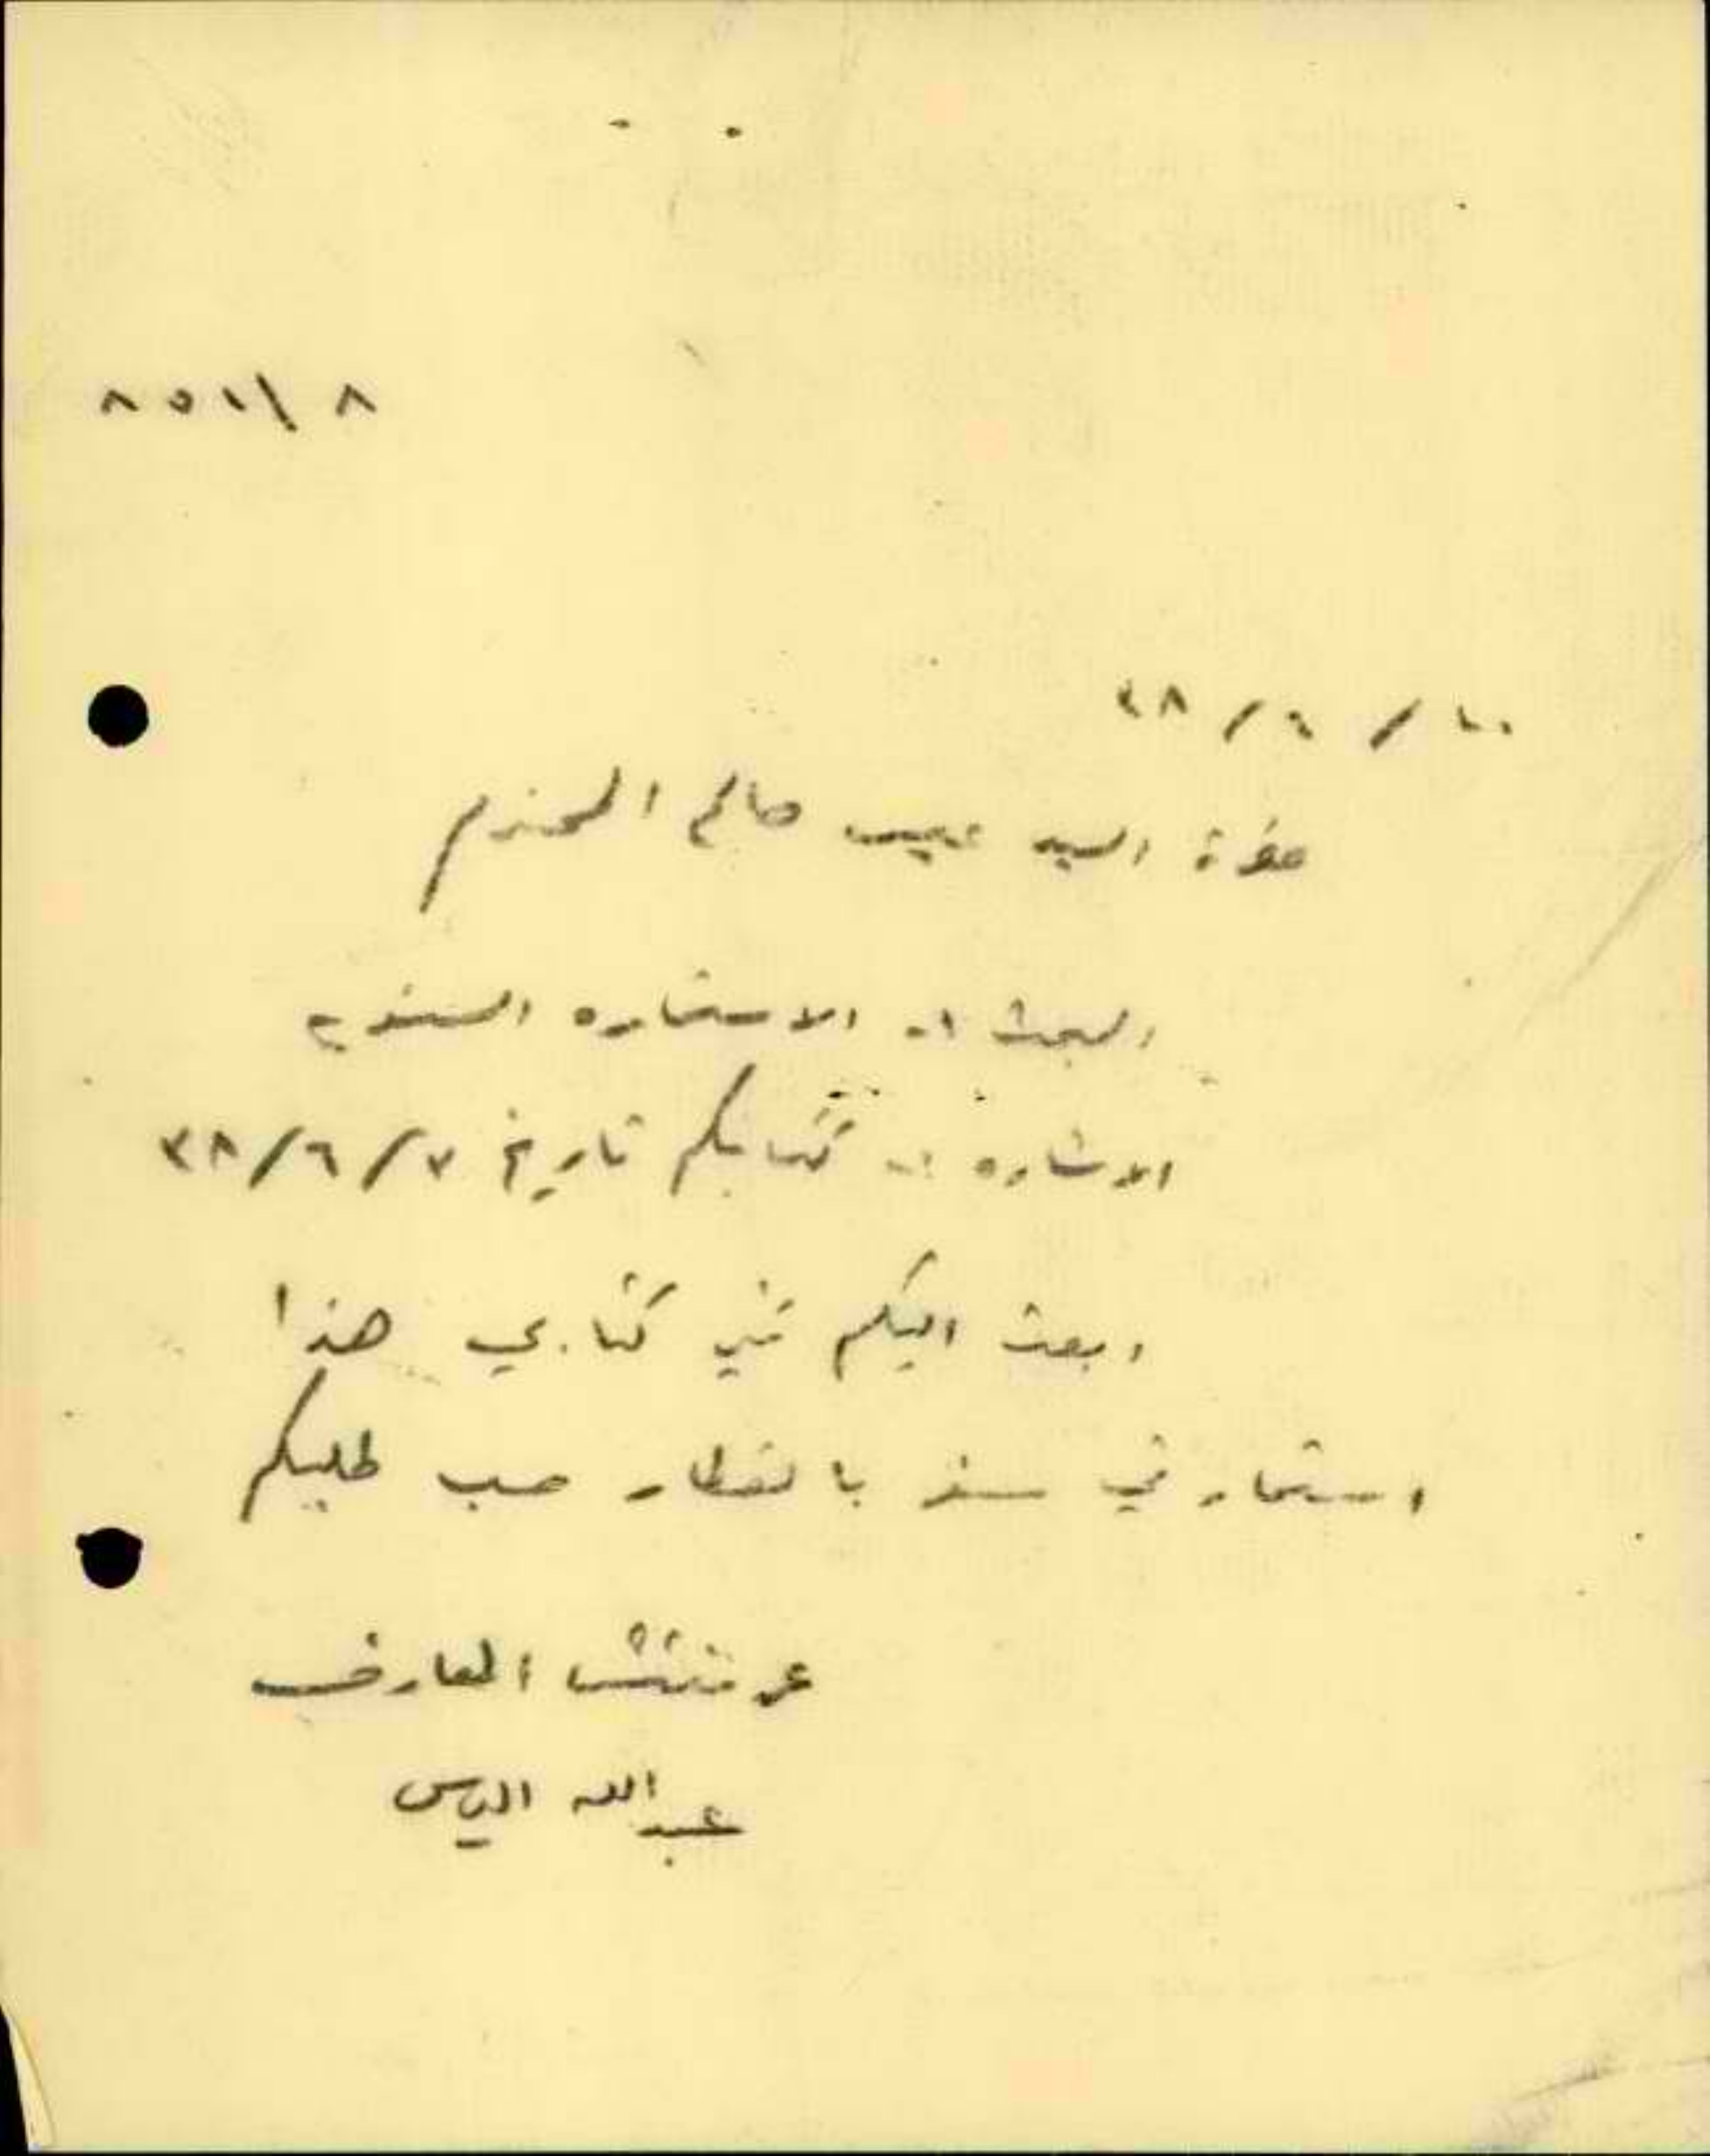 ٨٥١/٨
٢٠/٦/٣٨
حضرة السيد صالح المحترم
البحث :- الاستماره السنويه
الاشاره :- كتابكم تاريخ ٧/٦/٣٨
ابعث اليكم طي كتابي هذا
استمارتي سفر بالقطار حسب طلبكم
عن مفتش المعارف
عبدالله الياس